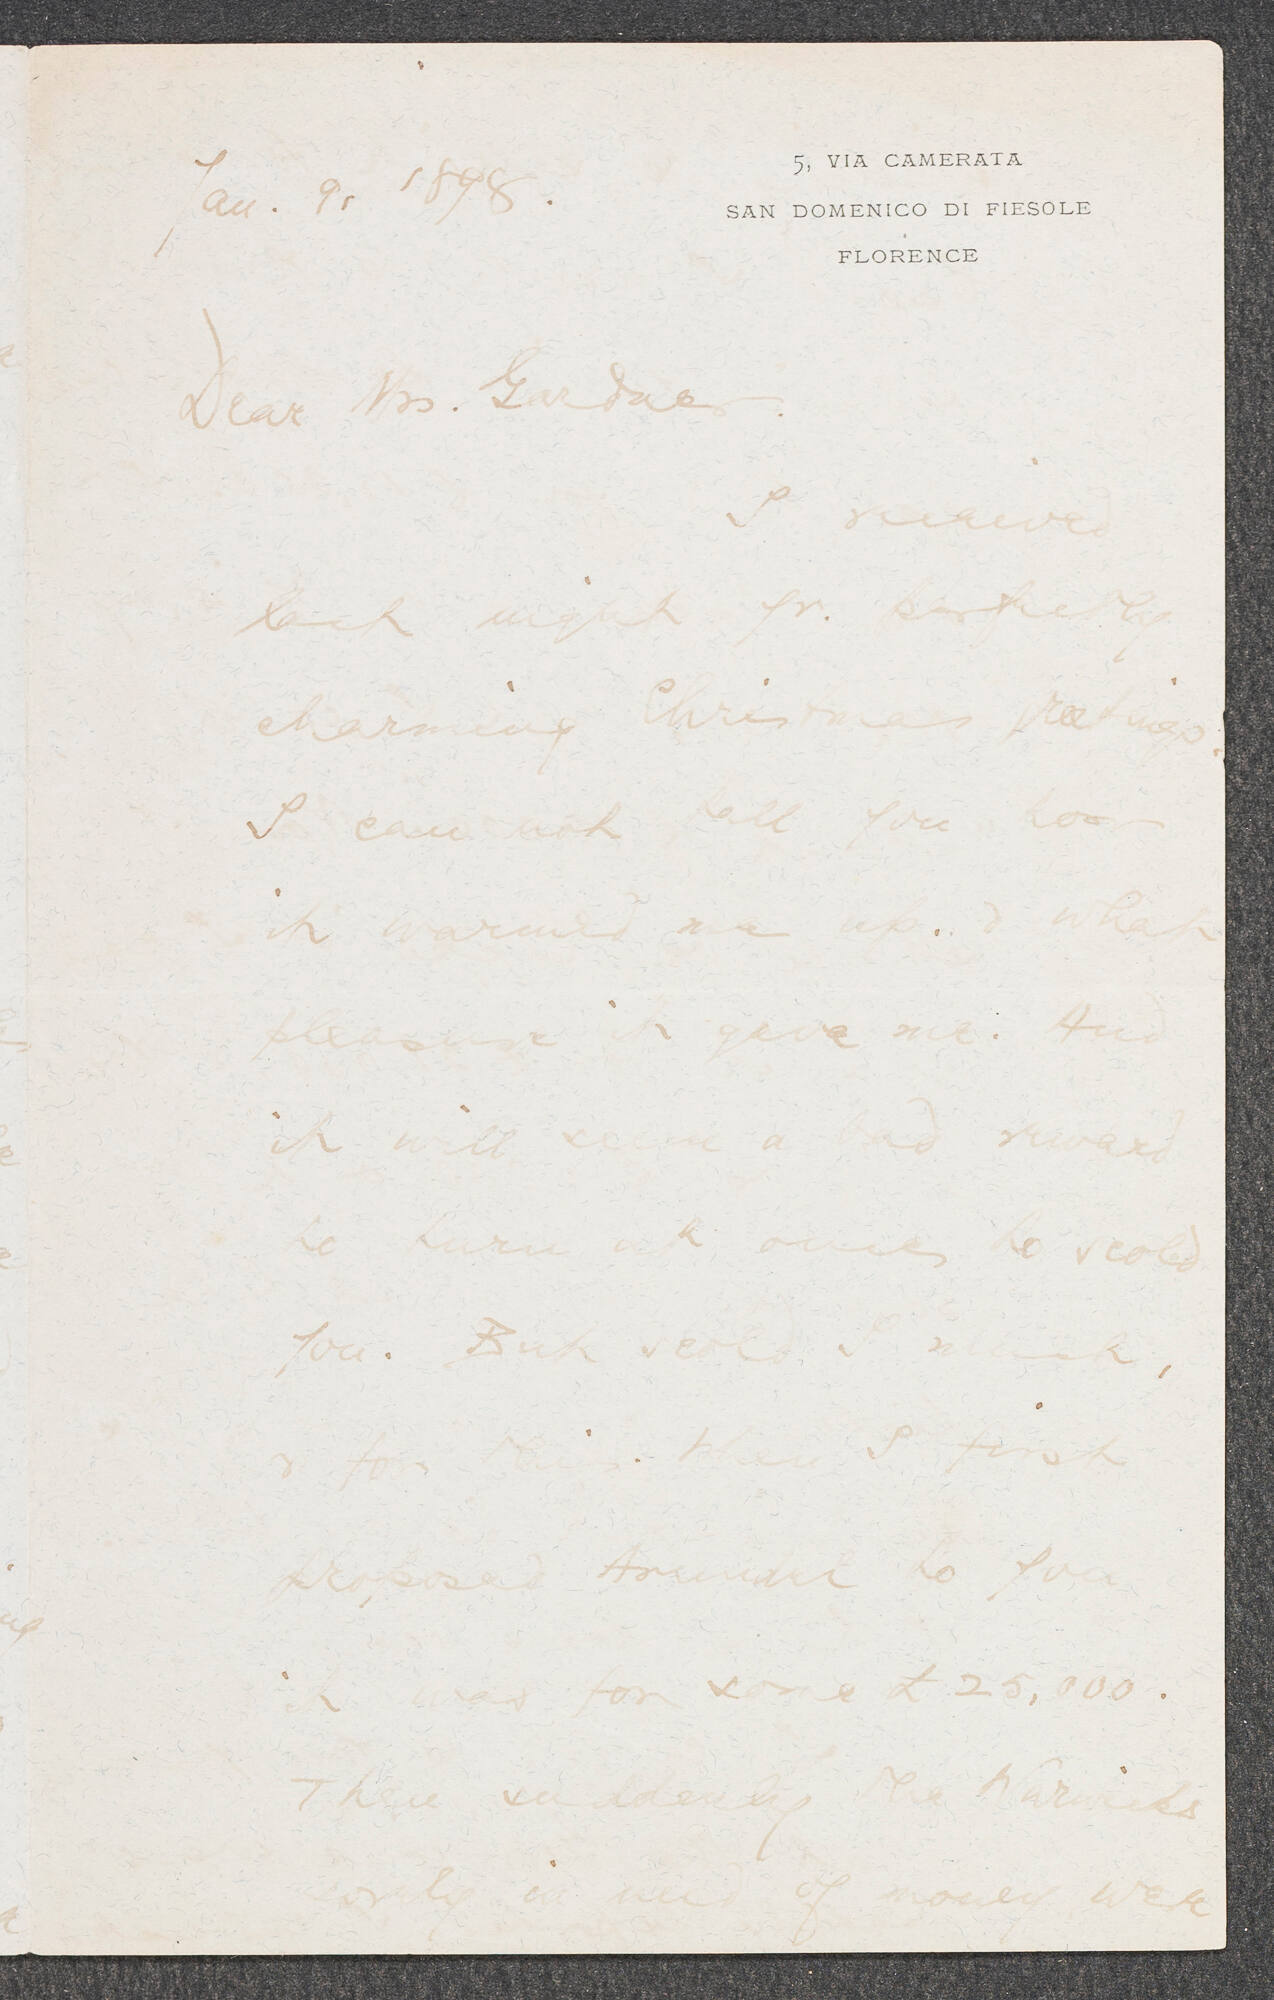 5, VIA CAMERATA
SAN DOMENICO DI FIESOLE
FLORENCE
Jan. 9, 1898.
Dear Mrs. Gardner.
I received
last night yr. perfectly
charming Christmas greetings.
I can not tell you how
it warmed me up. & what
pleasure it gave me. And
it will seem a bad reward
to turn at once to scold
you. But scold I must,
& for this. When I first
proposed Arundel to you
it was for some £25,000.
Then suddenly the Warwicks
sorely in need of money were